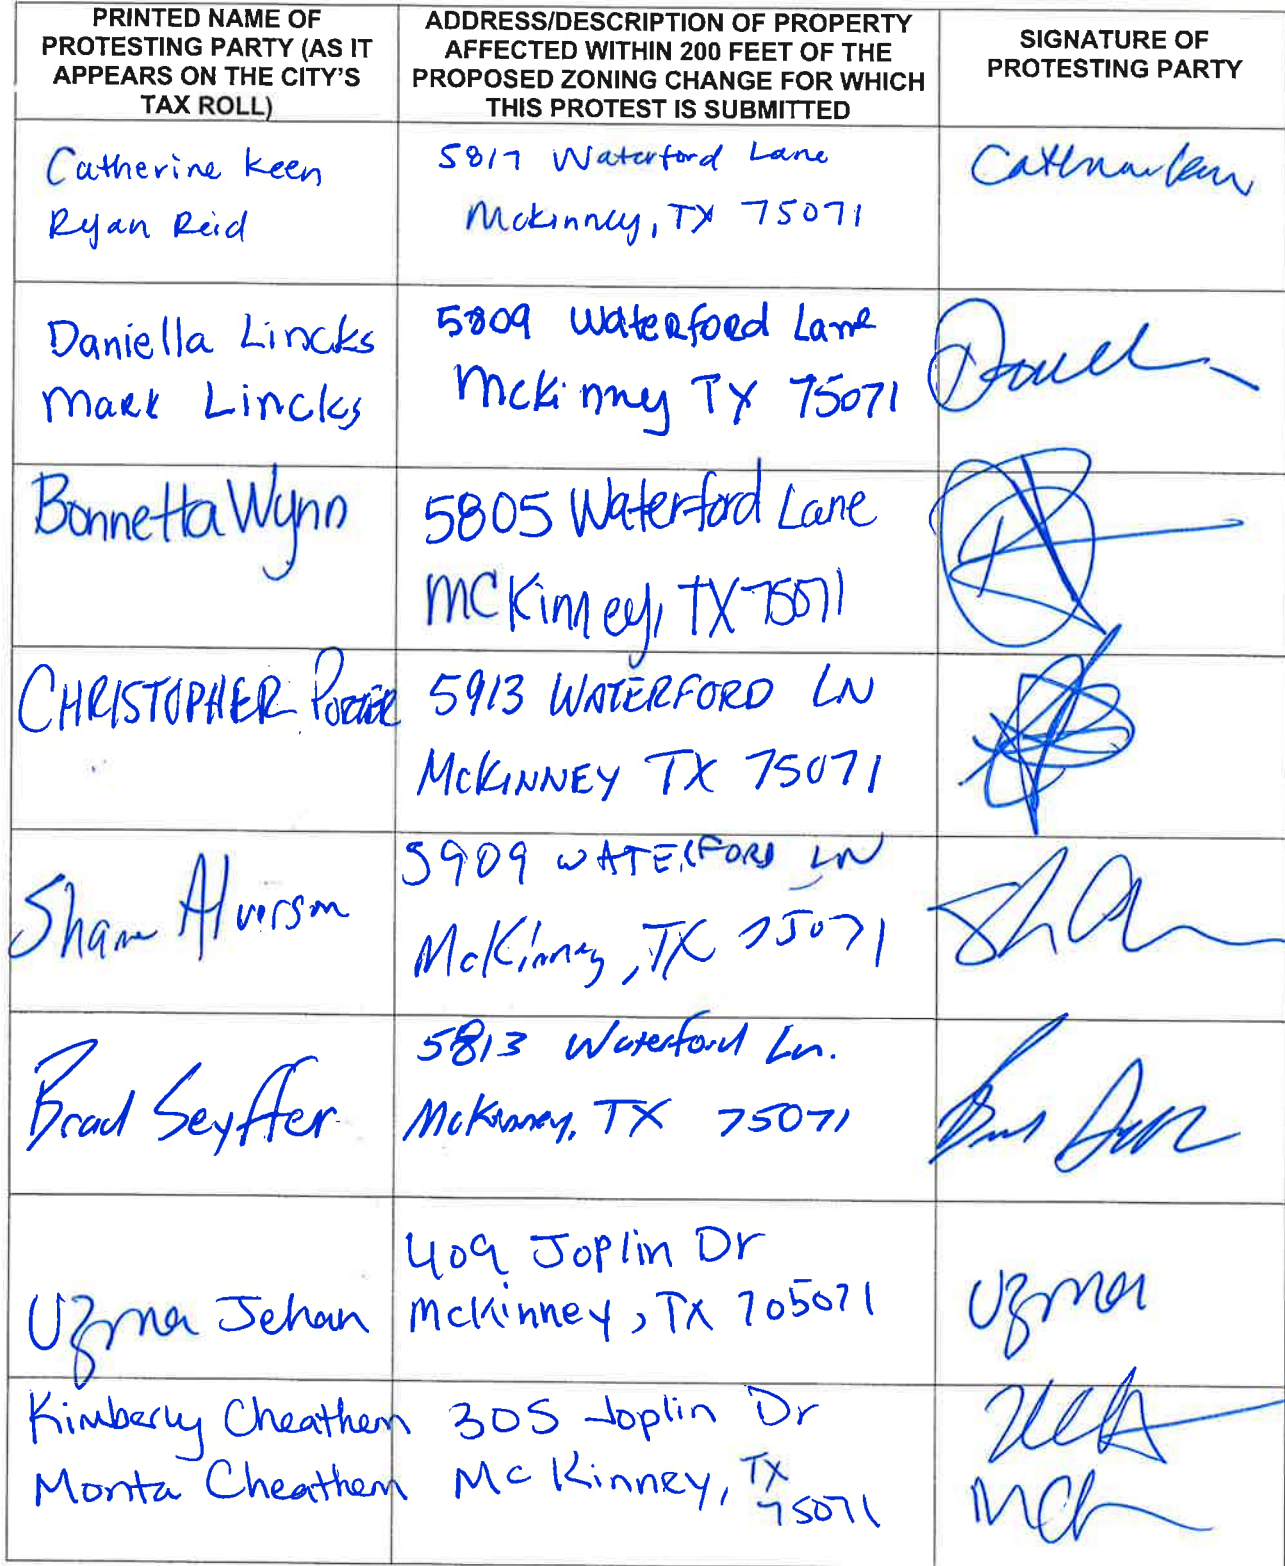 PRINTED NAME OF
PROTESTING PARTY (AS IT
APPEARS ON THE CITY'S
TAX ROLL)
ADDRESS/DESCRIPTION OF PROPERTY
AFFECTED WITHIN 200 FEET OF THE
PROPOSED ZONING CHANGE FOR WHICH
THIS PROTEST IS SUBMITTED
SIGNATURE OF
PROTESTING PARTY
Catherine Keen
Ryan Reid
5817 Waterford Lane
McKinney, TX 75071
Daniella Lincks
Mark Lincks
5809 Waterford Lane
McKinney TX 75071
Bonnetta Wynn
5805 Waterford Lane
McKinney, TX 75071
CHRISTOPHER PORTER
5913 WATERFORD LN
McKINNEY TX 75071
Shane Alverson
5909 WATERFORD LN
McKinney, TX 75071
Brad Seyffer
5813 Waterford Ln.
McKinney, TX 75071
Uzma Jehan
409 Joplin Dr
McKinney, TX 705071
Uzma
Kimberly Cheathem
Monta Cheathem
305 Joplin Dr
McKinney, TX
75071